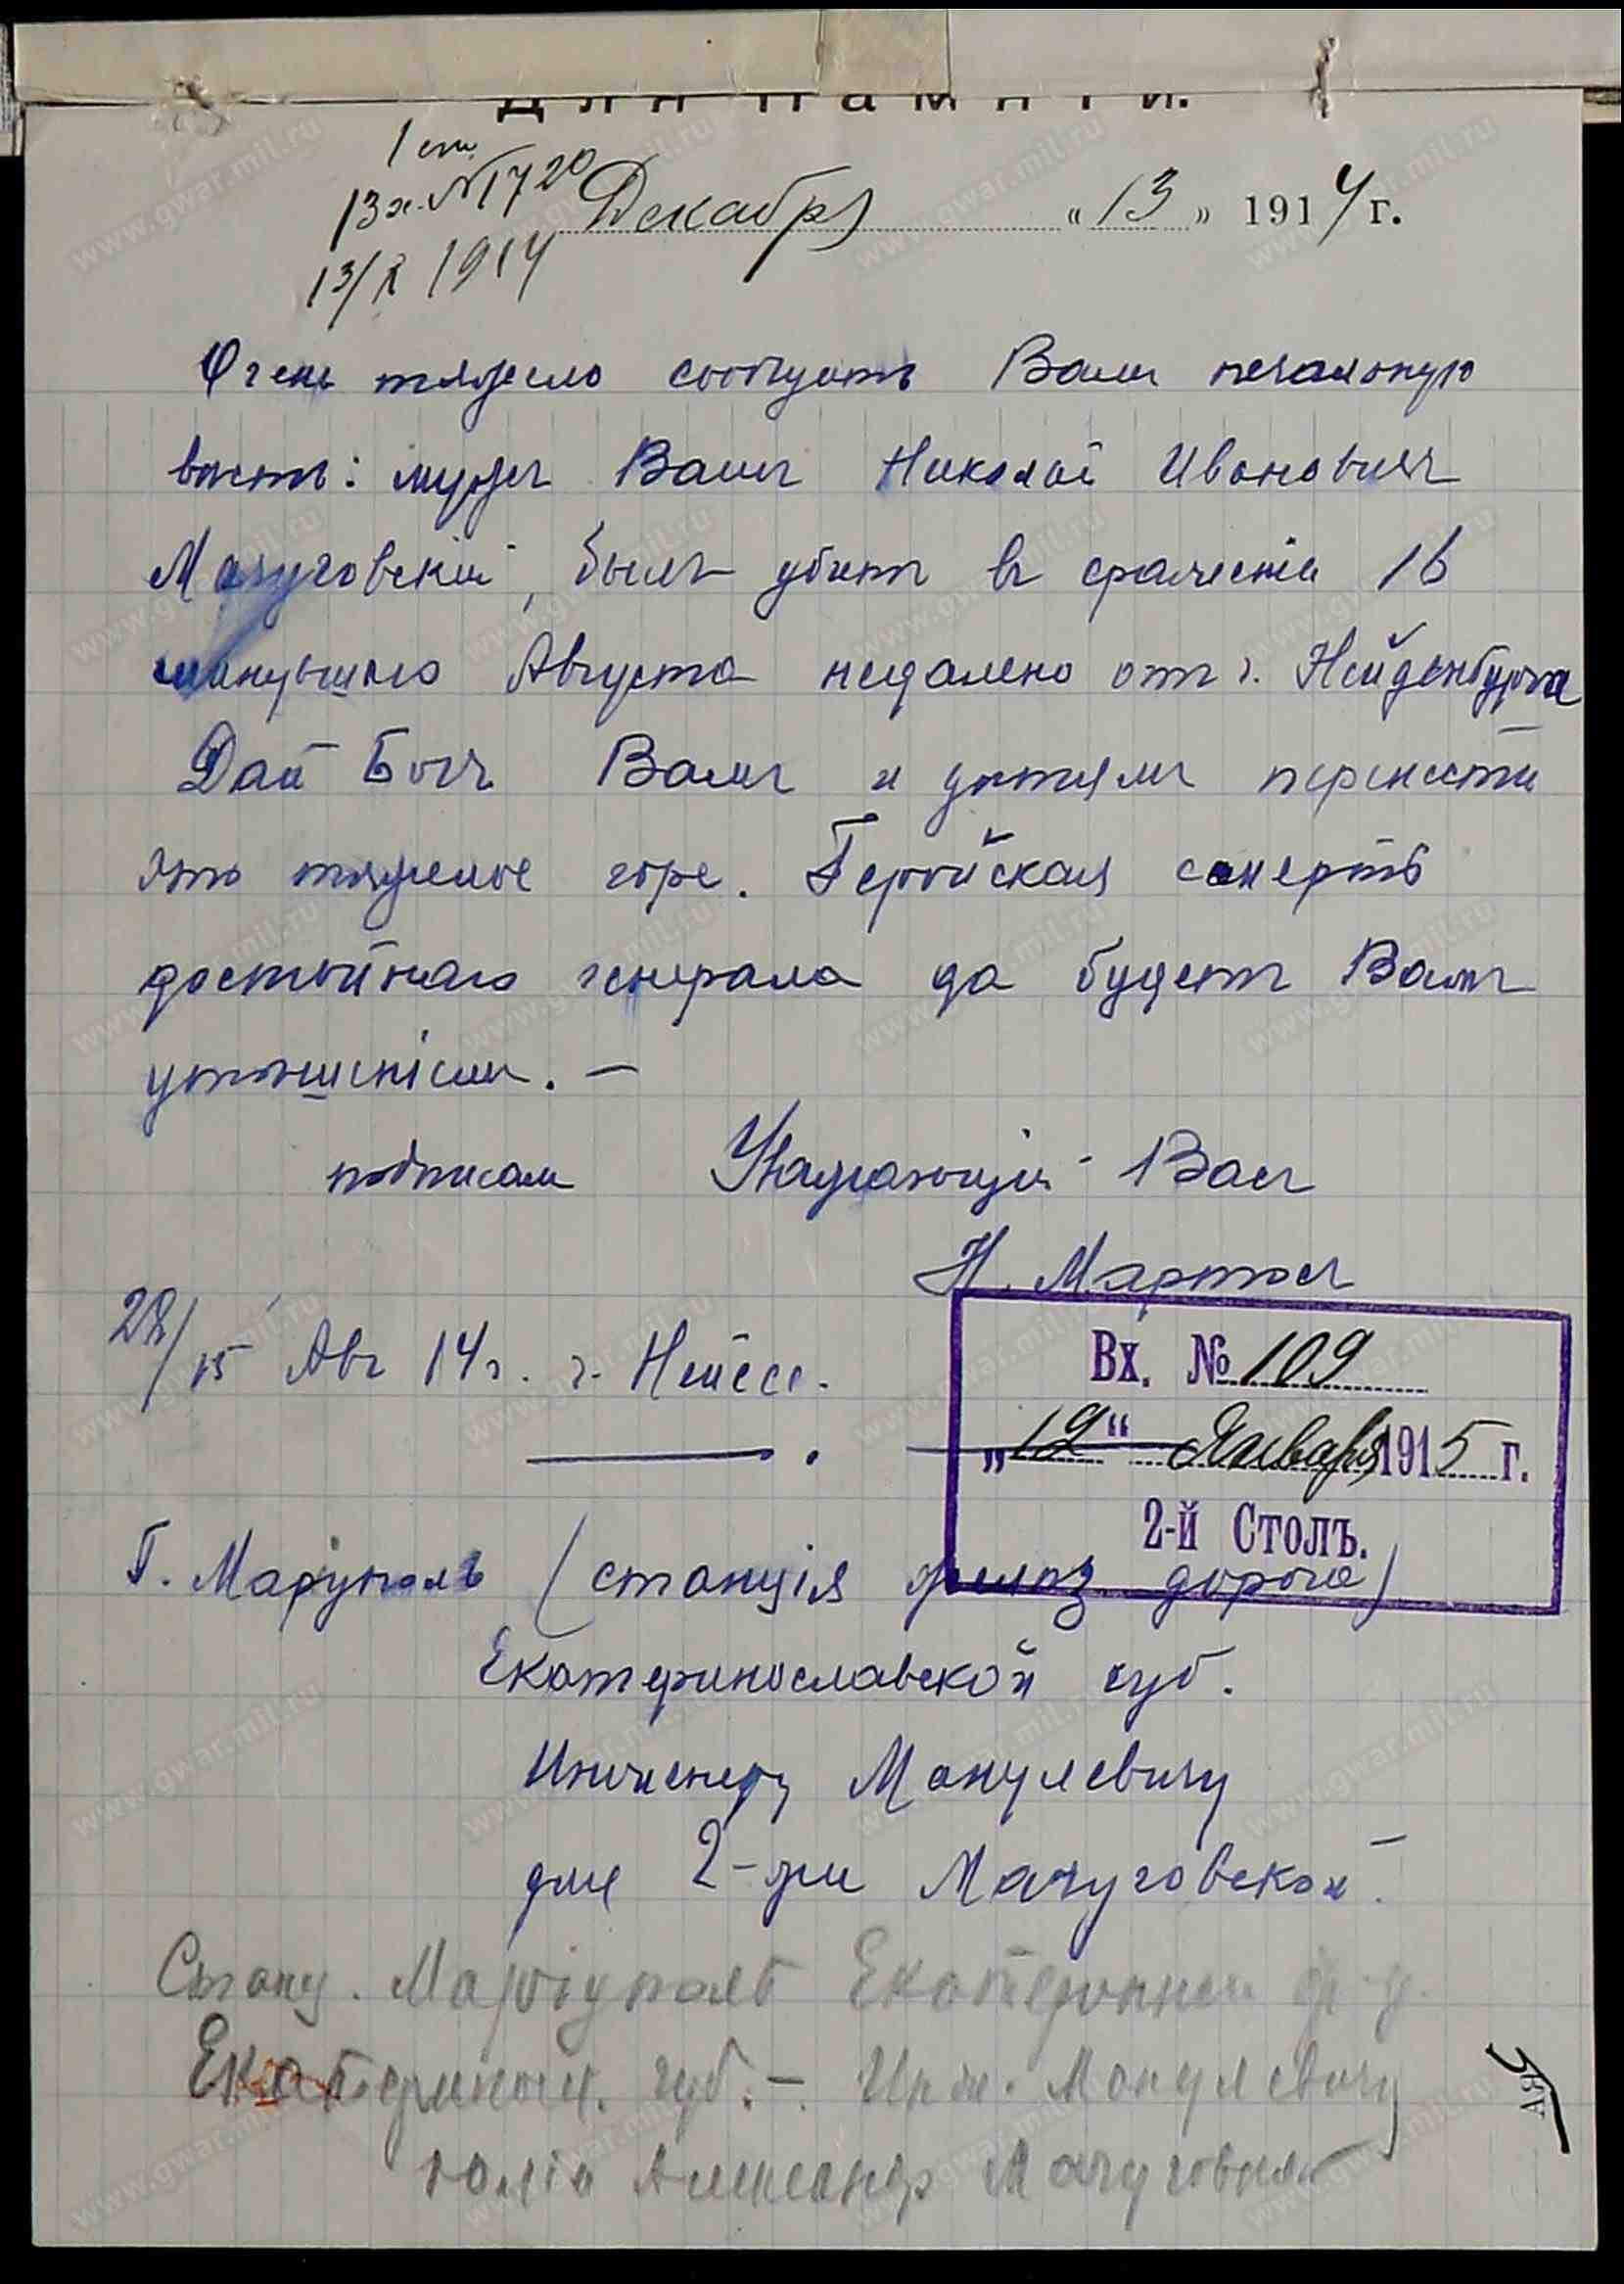 Для памяти.
1 ст.
13 х. №1720
13/X 1914
Декабря „13” 1914 г.
Очень тяжело сообщить Вамъ печальную
вѣсть: мужъ Вашъ Николай Ивановичъ
Мачуговскій, былъ убитъ въ сраженіи 16
минувшаго Августа недалеко отъ г. Нейденбурга
Дай Богъ Вамъ и дѣтямъ перенести
это тяжелое горе. Геройская смерть
достойнаго генерала да будетъ Вамъ
утѣшеніемъ. —
подписалъ Уважающій Васъ
Н. Мартосъ
28/15 Авг 14 г. г. Нейссе.
Вх. № 109
„12“ Января 1915 г.
2-й Столъ.
Г. Маріуполь (станція желѣз. дороги)
Екатеринославской губ.
Инженеру Манулевичу
для г-жи Мачуговской.
Станц. Маріуполь Екатеринин ж. д.
Екатериносл. губ. — Инж. Манулевичу
Юлія Александр Мачуговская